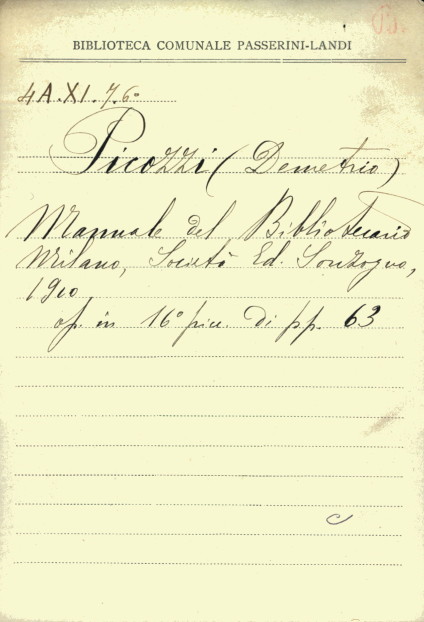 BIBLIOTECA COMUNALE PASSERINI-LANDI
4A.XI.7.6º
Picozzi (Demetrio)
Manuale del Bibliotecario
Milano, Società Ed. Sonzogno,
1910
op. in 16º picc. di pp. 63
c